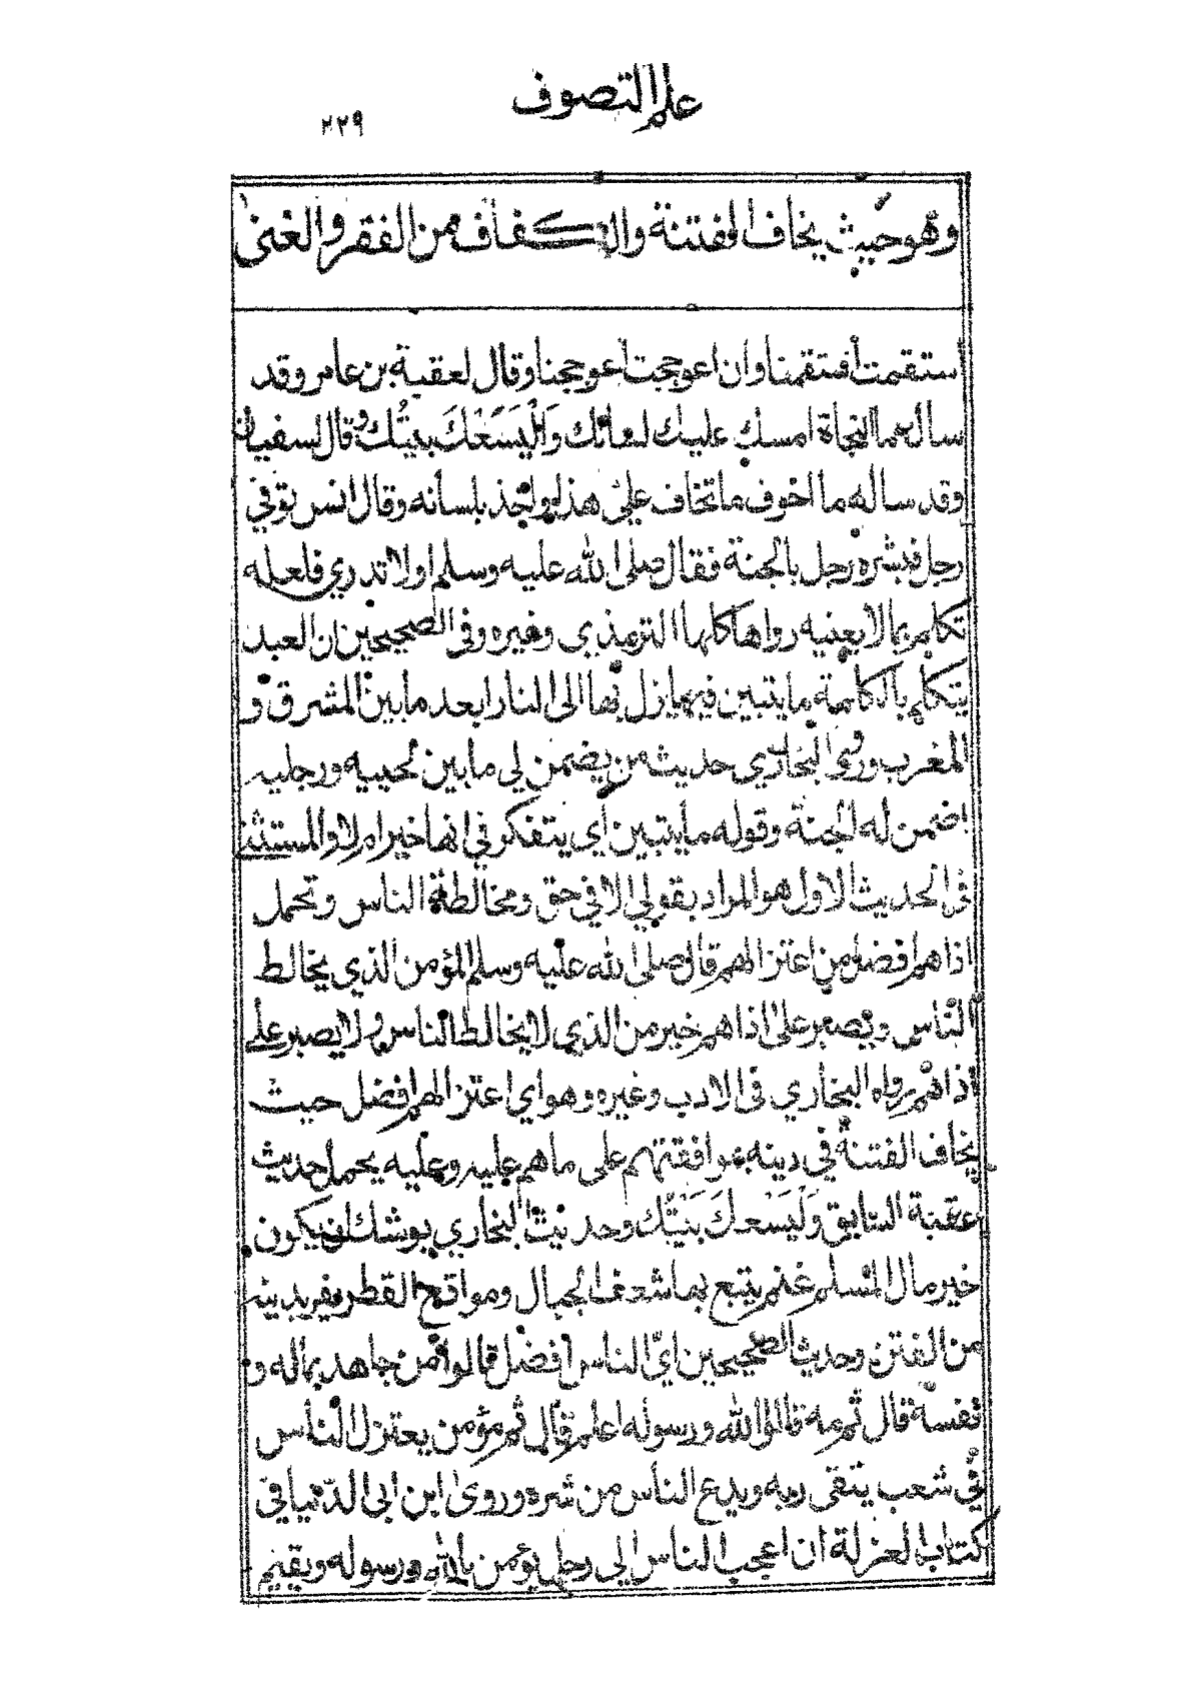 علم التصوف
٢٢٩
وهو حيث يخاف الفتنة والكفاف من الفقر والغنى
استقمت استقمنا وان اعوججت اعوججنا وقال لعقبة بن عامر وقد
ساله ما النجاة امسك عليك لسانك وَلْيَسَعْكَ بيتُك وقال لسفيان
وقد ساله ما اخوف ما تخاف علي هذا واخذ بلسانه وقال انس توفي
رجل فبشره رجل بالجنة فقال صلى الله عليه وسلم اولا تدري فلعله
تكلم بما لا يعنيه رواها كلها الترمذي وغيره وفي الصحيحين ان العبد
يتكلم بالكلمة ما يتبين فيها يزل بها الى النار ابعد ما بين المشرق و
المغرب وروى البخاري حديث من يضمن لي ما بين لحييه ورجليه
اضمن له الجنة وقوله ما يتبين أي يتفكر في انها خير ام لا والمستثنى
في الحديث الاول هو المراد بقولي الا في حق ومخالطة الناس وتحمل
اذاهم افضل من اعتزالهم قال صلى الله عليه وسلم المؤمن الذي يخالط
الناس ويصبر على اذاهم خير من الذي لا يخالط الناس ولا يصبر على
اذاهم رواه البخاري في الادب وغيره وهو اي اعتزالهم افضل حيث
يخاف الفتنة في دينه بموافقتهم على ما هم عليه وعليه يحمل حديث
عقبة السابق وَلْيَسْعكَ بَيْتُك وحديث البخاري يوشك ان يكون
خير مال المسلم غنم يتبع بها شعف الجبال ومواقع القطر يفر بدينه
من الفتن وحديث الصحيحين ايّ الناس افضل قالوا من جاهد بماله و
نفسه قال ثم مه قالوا الله ورسوله اعلم قال ثم مؤمن يعتزل الناس
في شعب يتقى ربه ويدع الناس من شره وروى ابن ابي الدّنيا في
كتاب العزلة ان اعجب الناس الي رجل يؤمن بالله ورسوله ويقيم